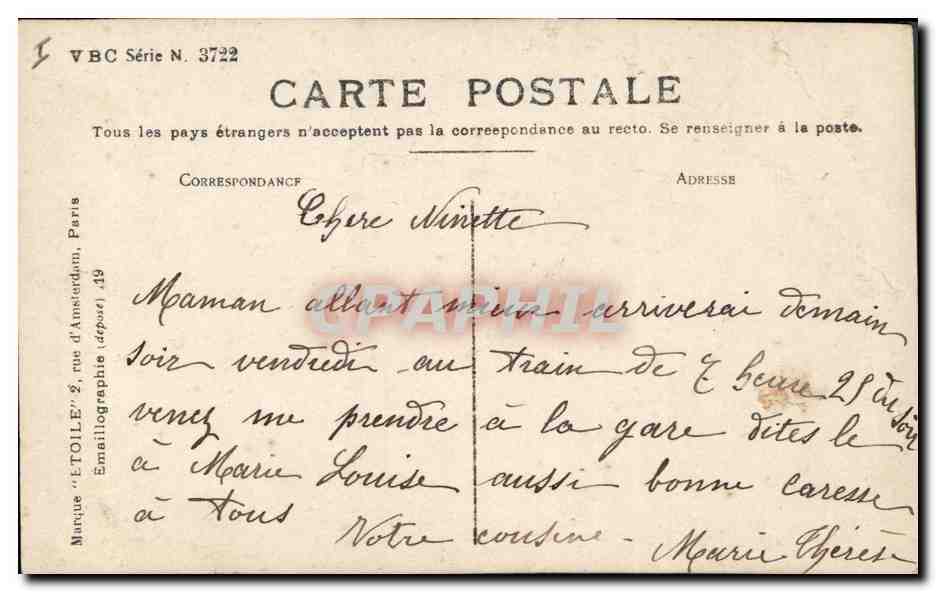 I
VBC Série N. 3722
CARTE POSTALE
Tous les pays étrangers n'acceptent pas la correspondance au recto. Se renseigner à la poste.
CORRESPONDANCE
ADRESSE
Chere Ninette
Maman allant mieux arriverai demain
soir vendredi au train de 7 heure 25 du soir
venez me prendre à la gare dites le
à Marie Louise aussi bonne caresse
à tous
Votre cousine
Marie Thérèse
Marque "ETOILE" 2, rue d'Amsterdam, Paris
Emaillographie (déposé) 19
CPAPHIL